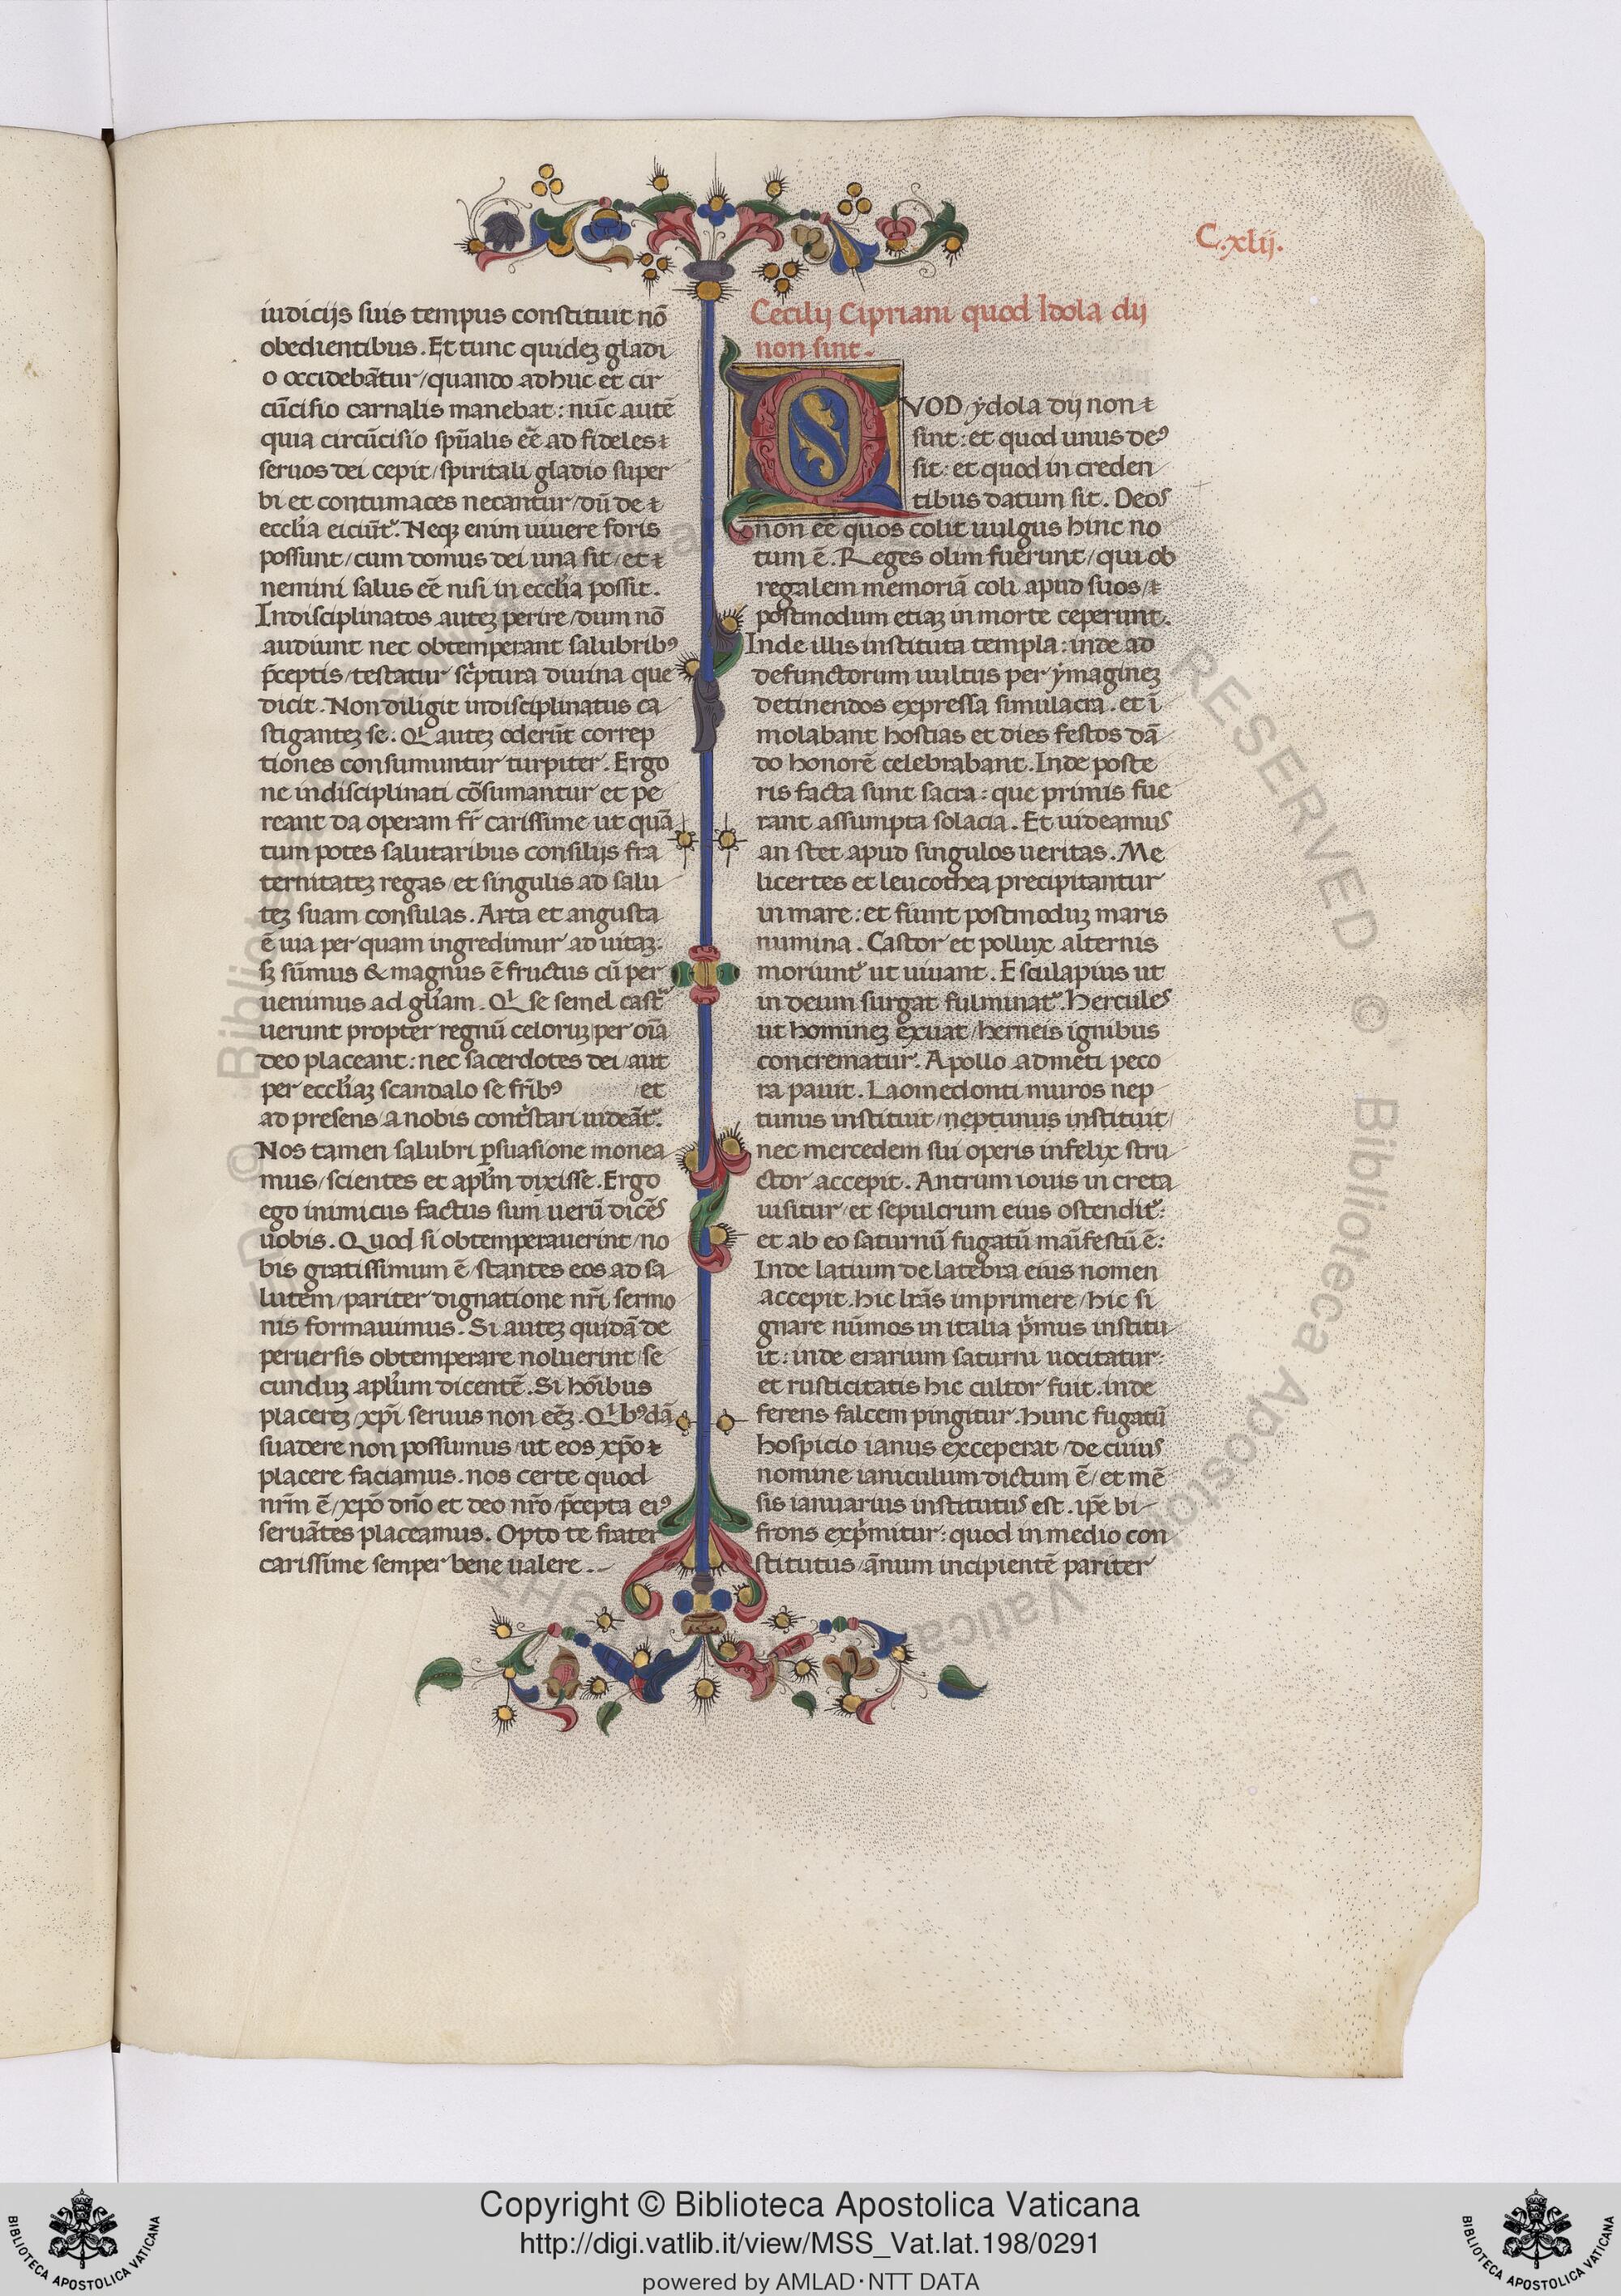 C.xlij.
iudicijs suis tempus constituit nō
obedientibus. Et tunc quideꝫ gladi
o occidebātur/quando adhuc et cir
cūcisio carnalis manebat: nūc autē
quia circūcisio spūalis eē ad fideles
seruos dei cepit/spiritali gladio super
bi et contumaces necantur/dū de
eccl̄ia eiciūt᷑. Neqꝫ enim uiuere foris
possunt/cum domus dei una sit/et
nemini salus eē nisi in eccl̄ia possit.
Indisciplinatos auteꝫ perire/dum nō
audiunt nec obtemperant salubribꝰ
p̄ceptis/testatur sc̄ptura diuina que
dicit. Non diligit indisciplinatus ca
stiganteꝫ se. Qͥ auteꝫ oderūt correp
tiones consumuntur turpiter. Ergo
ne indisciplinati cōsumantur et pe
reant da operam fr̄ carissime ut quā
tum potes salutaribus consilijs fra
ternitateꝫ regas/et singulis ad salu
teꝫ suam consulas. Arta et angusta
ē uia per quam ingredimur ad uitaꝫ:
sꝫ sūmus & magnus ē fructus cū per
uenimus ad gl̄iam. Qͥ se semel cast᷑
uerunt propter regnū celoruꝫ/per oīa
deo placeant: nec sacerdotes dei/aut
per eccl̄iaꝫ scandalo se fr̄ibꝰ et
ad presens/a nobis contͥstari uideāt᷑.
Nos tamen salubri ꝑsuasione monea
mus/scientes et apl̄m dixisse. Ergo
ego inimicus factus sum uerū dicēs
uobis. Quod si obtemperauerint/no
bis gratissimum ē/stantes eos ad sa
lutem/pariter dignatione nr̄i sermo
nis formauimus. Si auteꝫ quidā de
peruersis obtemperare noluerint/se
cunduꝫ apl̄um dicentē. Si hōibus
placereꝫ/xp̄i seruus non eēꝫ. Qͥbꝰdā
suadere non possumus/ut eos xp̄o
placere faciamus. nos certe quod
nr̄m ē/xp̄o dn̄o et deo nr̄o/p̄cepta eiꝰ
seruātes placeamus. Opto te frater
carissime semper bene ualere.
Cecilij Cipriani quod Idola dij
non sint.
QVOD ẏdola dij non
sint: et quod unus deꝰ
sit: et quod in creden
tibus datum sit. Deos
non eē quos colit uulgus hinc no
tum ē. Reges olim fuerunt/qui ob
regalem memoriā coli apud suos/
postmodum etiaꝫ in morte ceperunt.
Inde illis instituta templa: inde ad
defunctorum uultus per ẏmagineꝫ
detinendos expressa simulacra. et ī
molabant hostias et dies festos dā
do honorē celebrabant. Inde poste
ris facta sunt sacra: que primis fue
rant assumpta solacia. Et uideamus
an stet apud singulos ueritas. Me
licertes et leucothea precipitantur
in mare: et fiunt postmoduꝫ maris
numina. Castor et pollux alternis
moriunt᷑ ut uiuant. Esculapius ut
in deum surgat fulminat᷑. Hercules
ut homineꝫ exuat/herneis ignibus
concrematur. Apollo admeti peco
ra pauit. Laomedonti muros nep
tunus instituit/neptunus instituit/
nec mercedem sui operis infelix stru
ctor accepit. Antrum iouis in creta
uisitur/et sepulcrum eius ostendit᷑:
et ab eo saturnū fugatū maīfestū ē:
Inde latium de latebra eius nomen
accepit. hic lr̄as imprimere/hic si
gnare nūmos in italia pͥmus institu
it: inde erarium saturni uocitatur:
et rusticitatis hic cultor fuit. inde
ferens falcem pingitur. hunc fugatū
hospicio ianus exceperat/de cuius
nomine ianiculum dictum ē/et mē
sis ianuarius institutus est. ip̄e bi
frons expͥmitur: quod in medio con
stitutus/ānum incipientē pariter
Copyright © Biblioteca Apostolica Vaticana
http://digi.vatlib.it/view/MSS_Vat.lat.198/0291
powered by AMLAD·NTT DATA
BIBLIOTECA APOSTOLICA VATICANA
BIBLIOTECA APOSTOLICA VATICANA